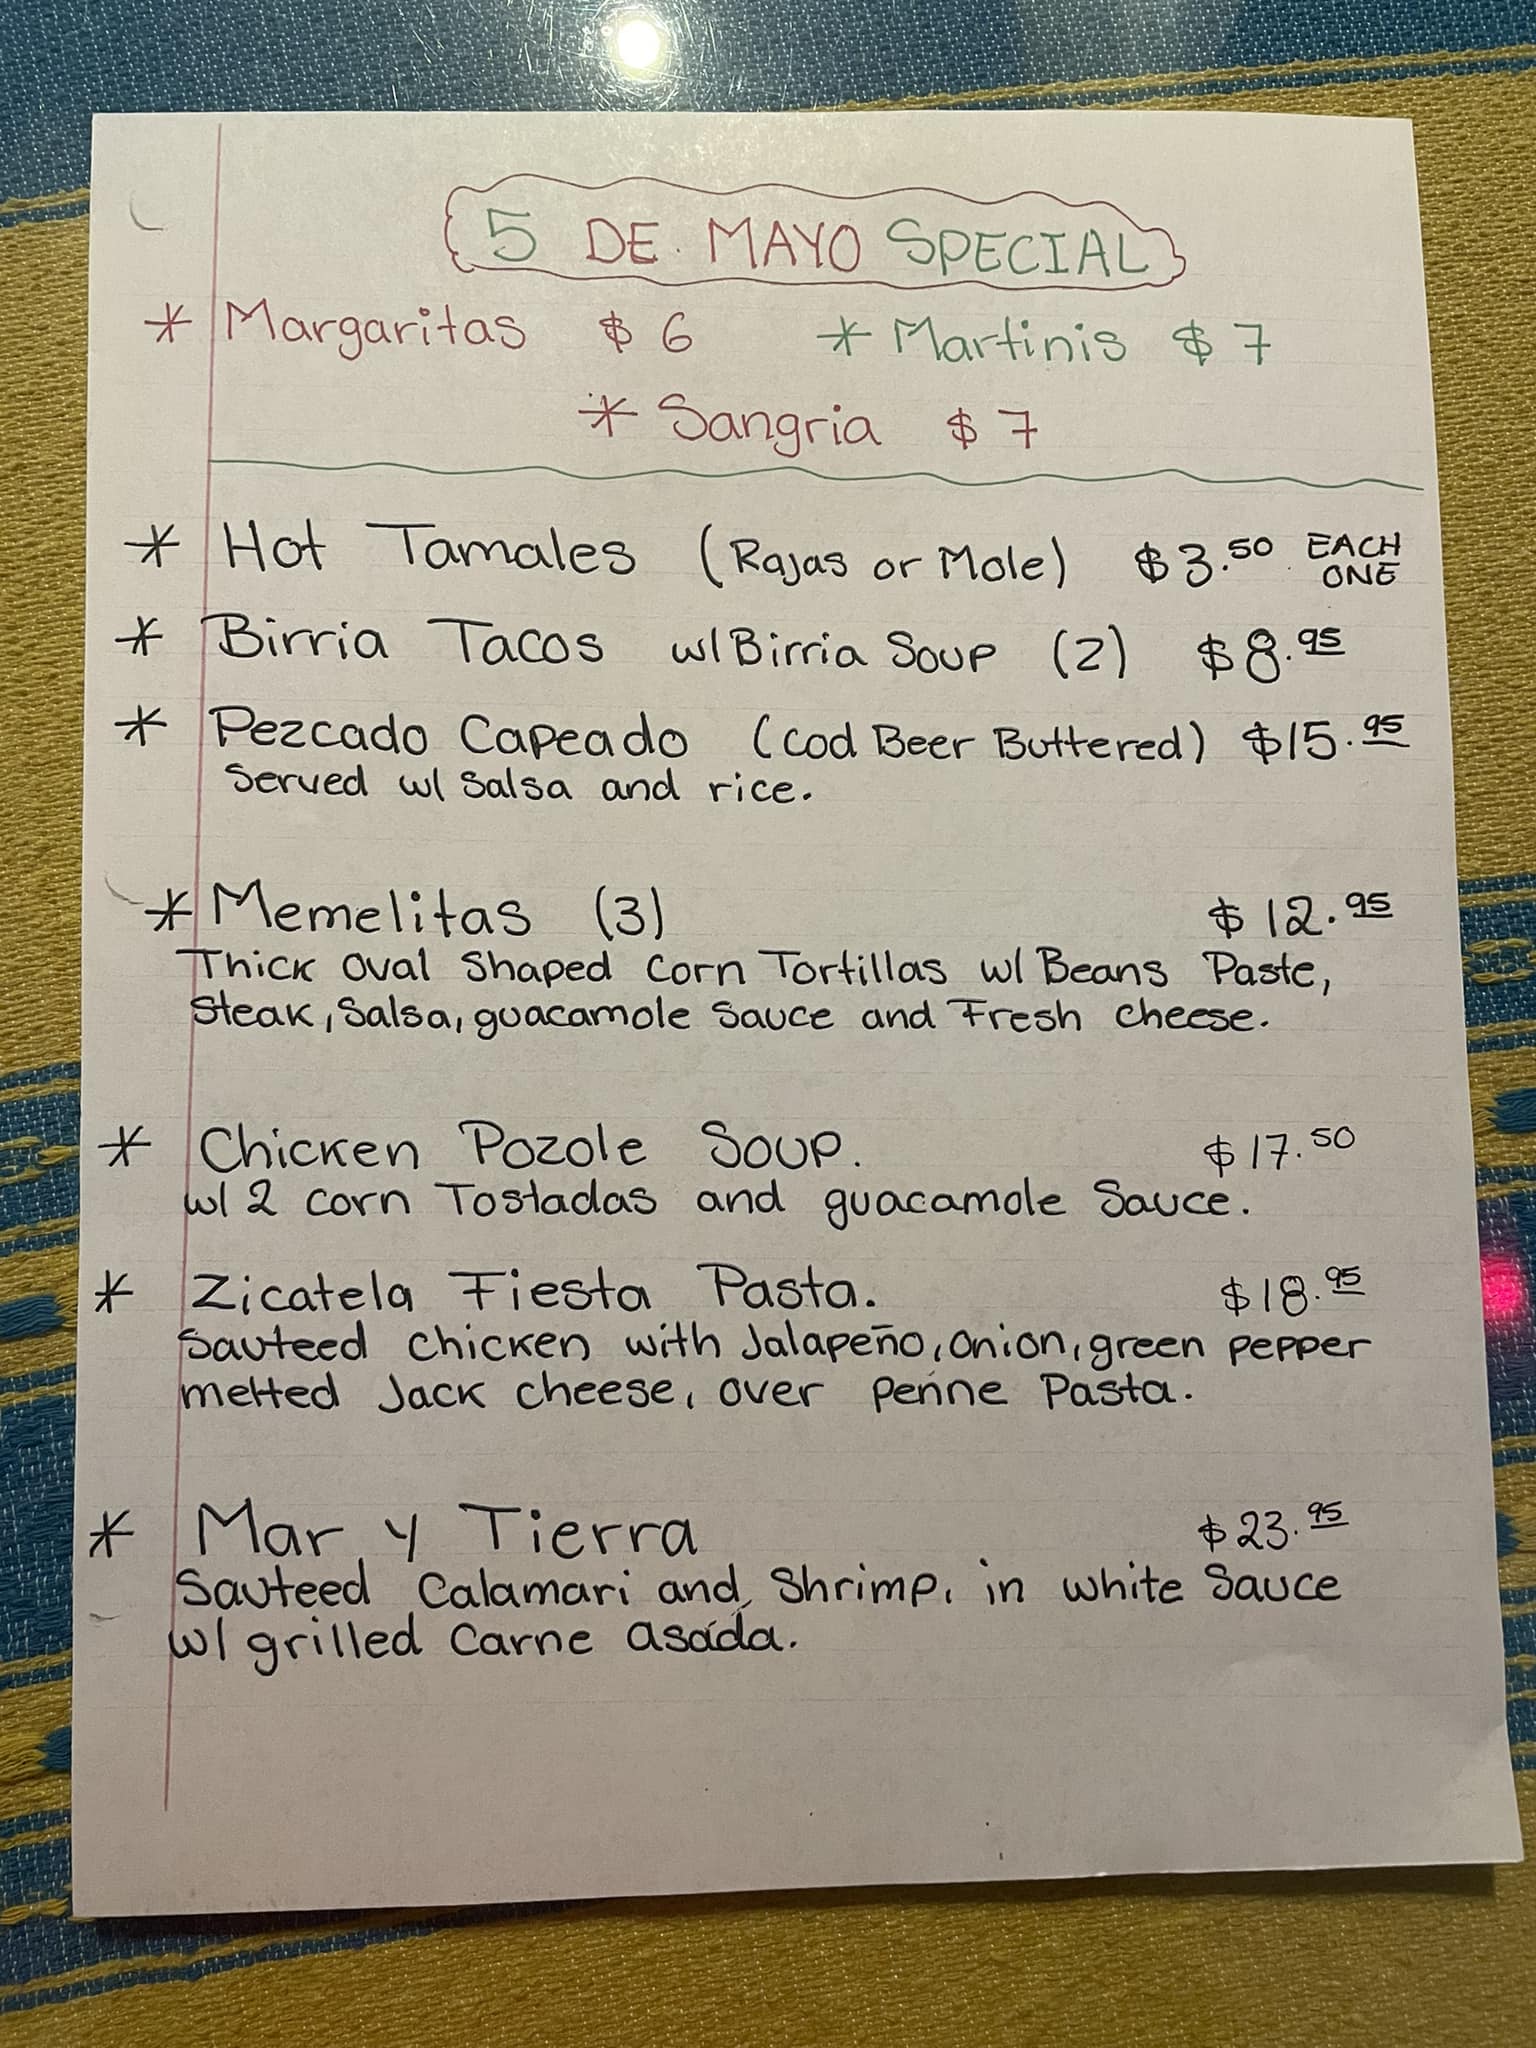 5 DE MAYO SPECIAL
* Margaritas $6 * Martinis $7
* Sangria $7
* Hot Tamales (Rajas or Mole) $3.50 EACH ONE
* Birria Tacos w/ Birria Soup (2) $8.95
* Pezcado Capeado (Cod Beer Buttered) $15.95
Served w/ Salsa and rice.
* Memelitas (3) $12.95
Thick Oval Shaped Corn Tortillas w/ Beans Paste,
Steak, Salsa, guacamole Sauce and Fresh cheese.
* Chicken Pozole Soup. $17.50
w/ 2 corn Tostadas and guacamole Sauce.
* Zicatela Fiesta Pasta. $18.95
Sauteed chicken with Jalapeño, onion, green pepper
melted Jack cheese, over penne Pasta.
* Mar y Tierra $23.95
Sauteed Calamari and Shrimp, in white Sauce
w/ grilled Carne asada.